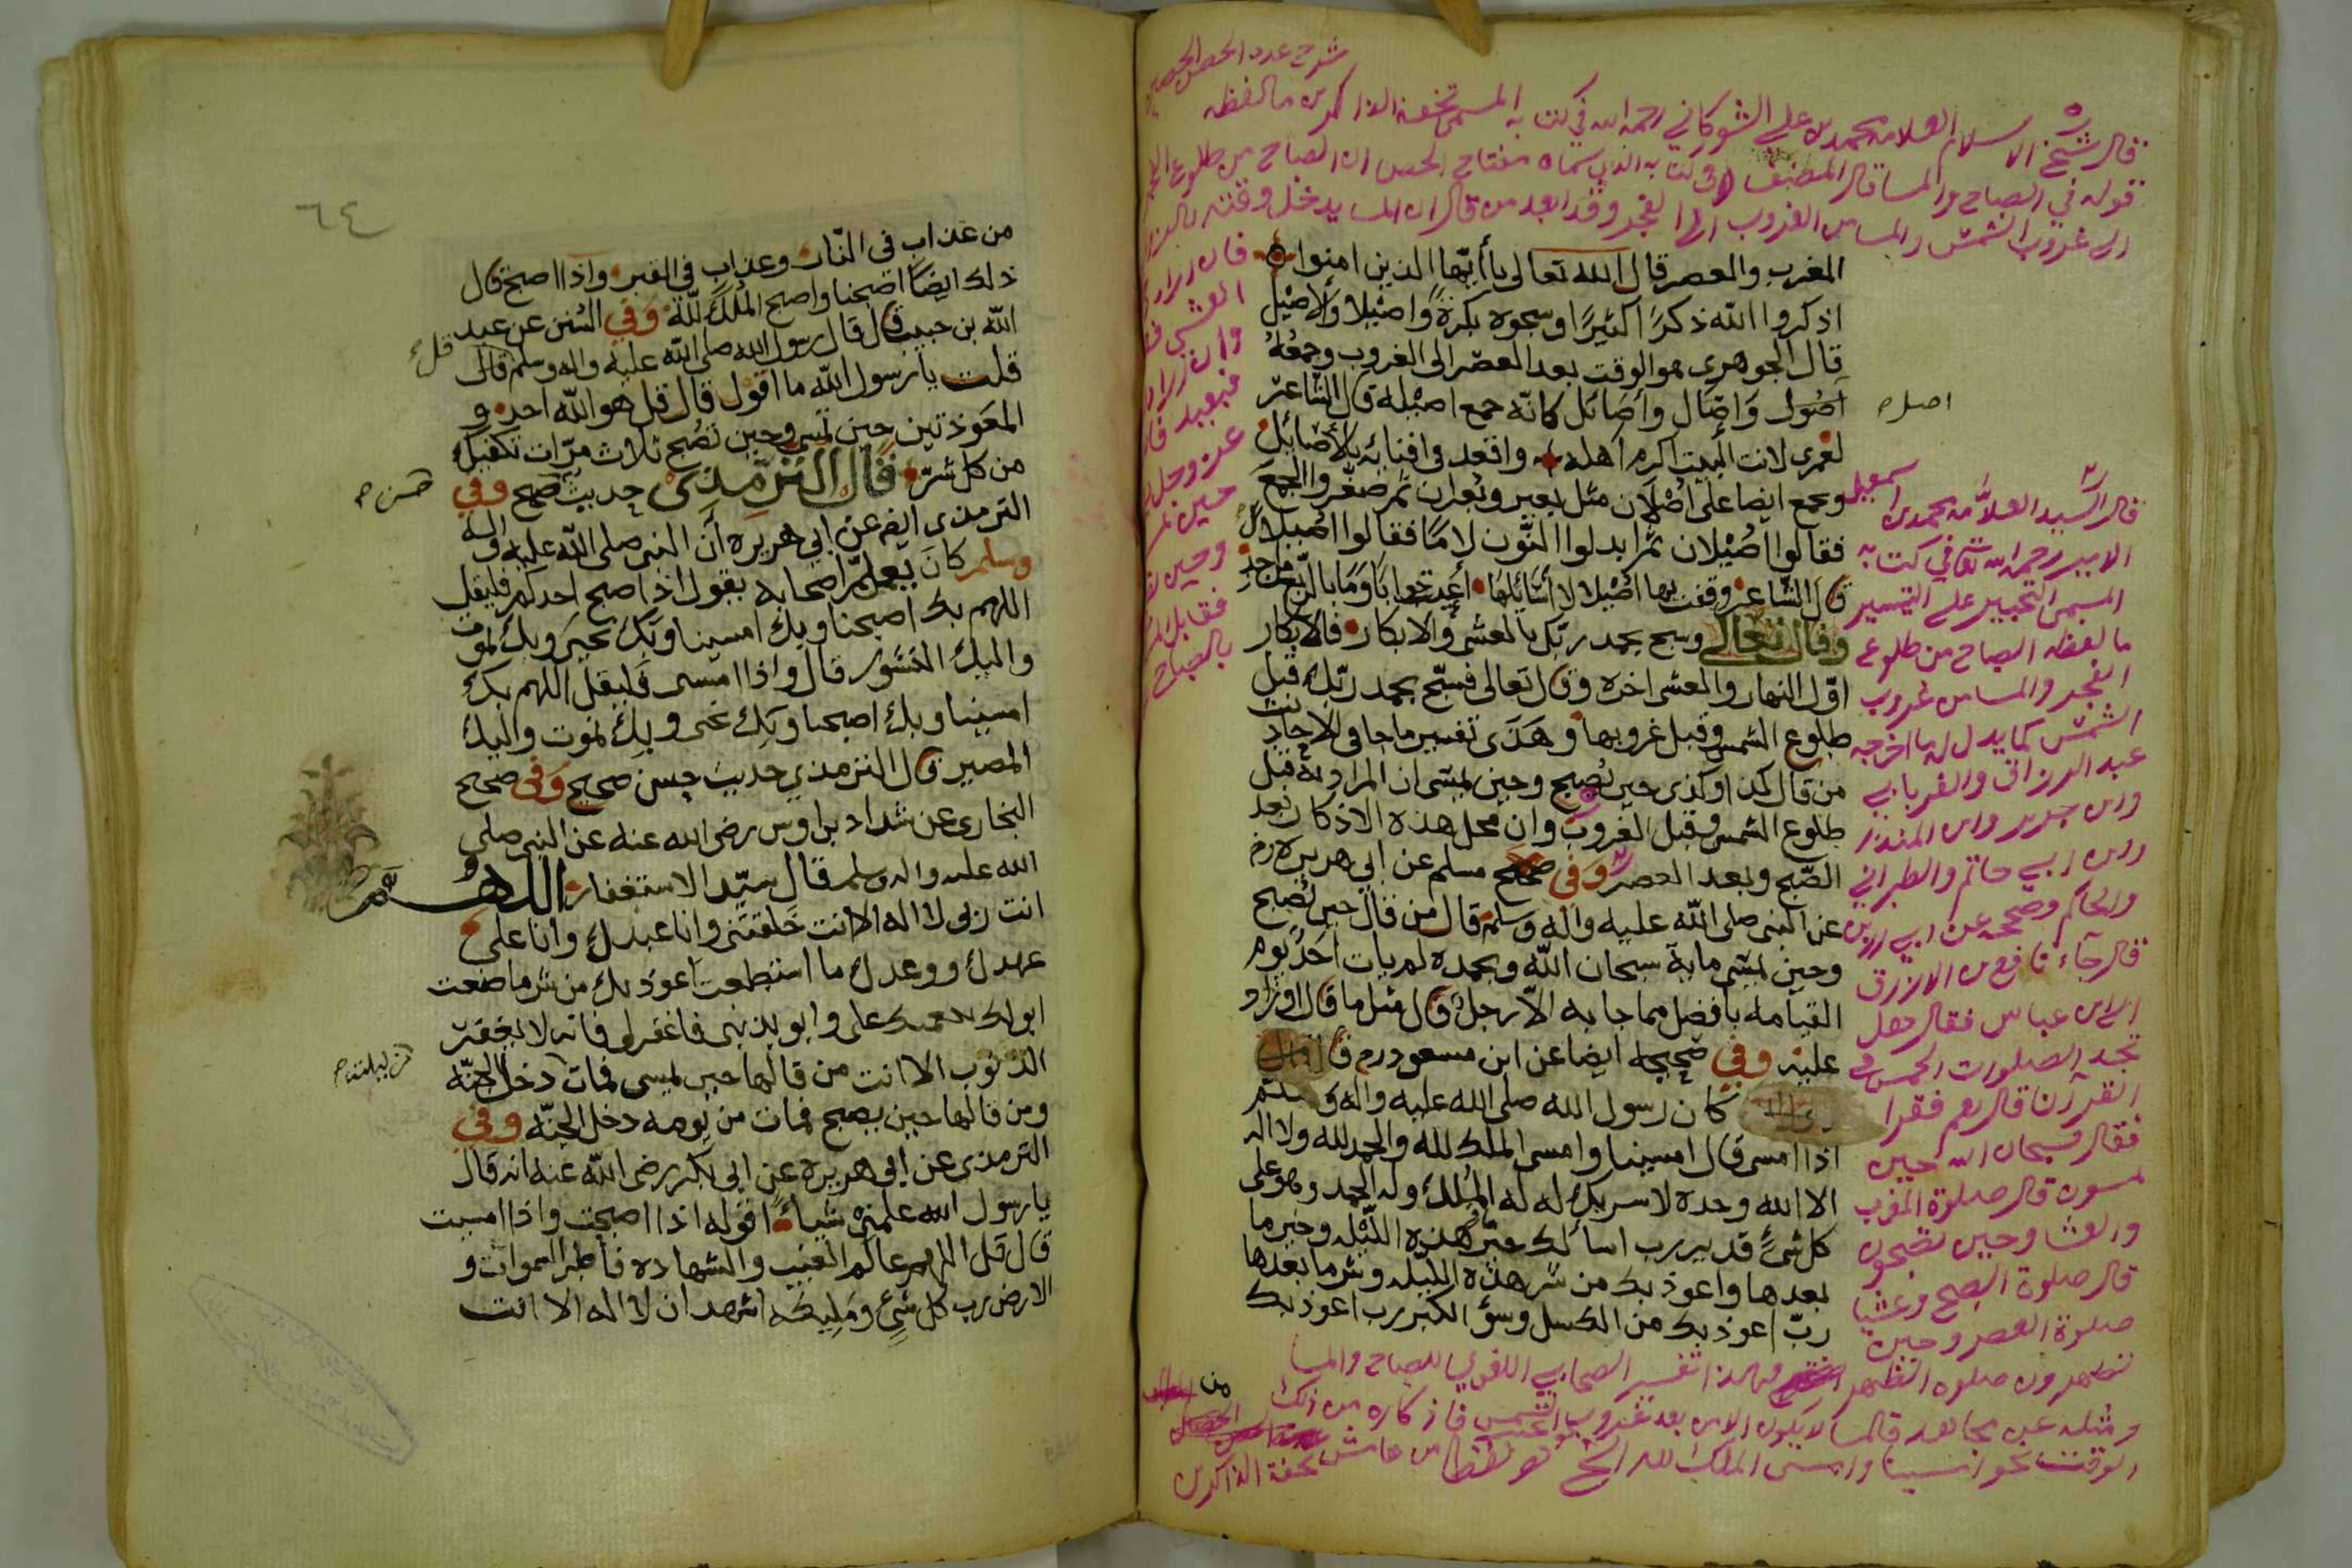 شرح عدة الحصن الحصين
قال شيخ الاسلام العلامه محمد بن علي الشوكاني رحمه الله في كتابه المسمى تحفة الذاكرين ما لفظه
قوله في الصباح والمسا قال المصنف في كتابه الذي سماه مفتاح الحصن ان الصباح من طلوع الفجر
الى غروب الشمس والمسا من الغروب الى الفجر وقد ابعد من قال ان المسا يدخل وقته بالزوال
المغرب والعصر قال الله تعالى يا أيها الذين امنوا
اذكروا الله ذكرًا كثيرًا وسبحوه بكرةً واصيلا والاصيل
قال الجوهري هو الوقت بعد العصر الى الغروب وجمعُهُ
أُصُول وَاصَال وأَصَائل كانّه جمع اصيلة قال الشاعر
لعمرى لانت البيت اكرم اهله واقعد في افنائه بالأصائل
ويجمع ايضا على اصْلان مثل بعير وبُعران ثم صغّروا الجمع
فقالوا اصُيْلان ثم ابدلوا النون لامًا فقالوا اصيلال
قال الشاعر وقفت بها اصَيْلا لا أسائلها اعيت جوابا وما بالربع من احد
وقال تعالى وسبح بحمد ربك بالعشي والابكار فالابكار
اوّل النهار والعشي اخره وقال تعالى فسبّح بحمد ربّك قبل
طلوع الشمس وقبل غروبها وهَذَى تفسير ماجا في الاحاديث
من قال كذا وكذى حين يُصبح وحين يمسي ان المراد به قبل
طلوع الشمس وقبل الغروب وان محل هذه الاذكار بعد
الصّبح وبعد العصر وفي صحيح مسلم عن ابي هريره رض
عن النبي صلى الله عليه واله وسلم قال من قال حين يُصبح
وحين يمسي ماية سبحان اللّه وبحمده لم يات احدٌ يوم
القيامه بافضل مما جا به الاّ رجل قال مثل ما قال او زاد
عليه وفي صحيحه ايضا عن ابن مسعود رض قال
كان رسول الله صلى الله عليه واله وسلم
اذا امسى قال امسينا وامسى الملك لله والحمد لله ولا اله
الا الله وحده لا شريك له له المُلك وله الحمد وهو على
كل شئ قدير رب اسألك خير هذه الليله وخير ما
بعدها واعوذ بك من شر هذه الليله وشر ما بعدها
ربّ اعوذ بك من الكسل وسؤ الكبر رب اعوذ بك
من
اصل ح
قال السيد العلامه محمد بن اسمعيل
الامير رحمه الله تعالى في كتابه
المسمى التحبير على التيسير
ما لفظه الصباح من طلوع
الفجر والمسا من غروب
الشمس كما يدل له ما اخرجه
عبد الرزاق والفريابي
وابن جرير وابن المنذر
وابن ابي حاتم والطبراني
والحاكم وصححه عن ابي رزين
قال جاء نافع بن الازرق
الى ابن عباس فقال هل
تجد الصلوات الخمس في
القرآن قال نعم فقرا
فقال فسبحان الله حين
تمسون قال صلوة المغرب
والعشا وحين تصبحون
قال صلوة الصبح وعشيا
صلوة العصر وحين
تظهرون صلوه الظهر فهذا تفسير الصحابي اللغوي للصباح والمسا
ومثله عن مجاهد فالمسا لا يكون الا من بعد غروب الشمس فاذكاره من ذلك
الوقت نحو امسينا وامسى الملك لله الخ من هامش تحفة الذاكرين
٦٤
من عذاب في النّار وعذاب في القبر واذا اصبح قال
ذلك ايضًا اصبحنا واصبح المُلك للّه وَفي السُنن عن عبد
الله بن حبيب قال قال رسول الله صلى الله عليه واله وسلم قال
قلت يا رسول اللّه ما اقول قال قل هو اللّه احد و
المعَوذتين حين تمسي وحين تصُبح ثلاث مرّات تكفيك
من كل شئ قال الترمذي حديث صحيح وفي
الترمذي ايضا عن ابي هريره أن النبي صلى اللّه عليه واله
وسلم كانَ يعلم اصحابه يقول اذا اصبح احدكم فليقل
اللهم بك اصبحنا وبك امسينا وبَك نحيى وبك نموت
واليك النشور قال واذا امسى فَليقل اللهم بك
امسينا وبك اصبحنا وبِك نحيى وبك نموت واليك
المصير قال الترمذي حديث حسن صحيح وَفي صحيح
البخاري عن شداد بن اوس رضي الله عنه عن النبي صلى
الله عليه واله وسلم قال سيّد الاستغفار اللهُمَّ
انت ربي لا اله الا انت خَلقتَني وانا عبدك وانا على
عهدك ووعدك ما استطعت اعوذ بك من شر ما صنعت
ابوء لك بنعمتك علي وابو بذنبي فاغفر لي فانه لا يغفر
الذنوب الا انت من قالها حين يمسي فمات دخل الجنّه
ومن قالها حين يصبح فمات من يومه دخل الجنّه وفي
الترمذي عن ابي هريرة عن ابي بكر رضي اللّه عنه انه قال
يا رسول الله علمني شياءً اقوله اذا اصبحت واذا امسيت
قال قل اللهم عالم الغيب والشهاده فاطر السموات و
الارض رب كل شيءٍ ومَلِيكه اشهد ان لا اله الا انت
قل
حسن ح
من ليلته ح